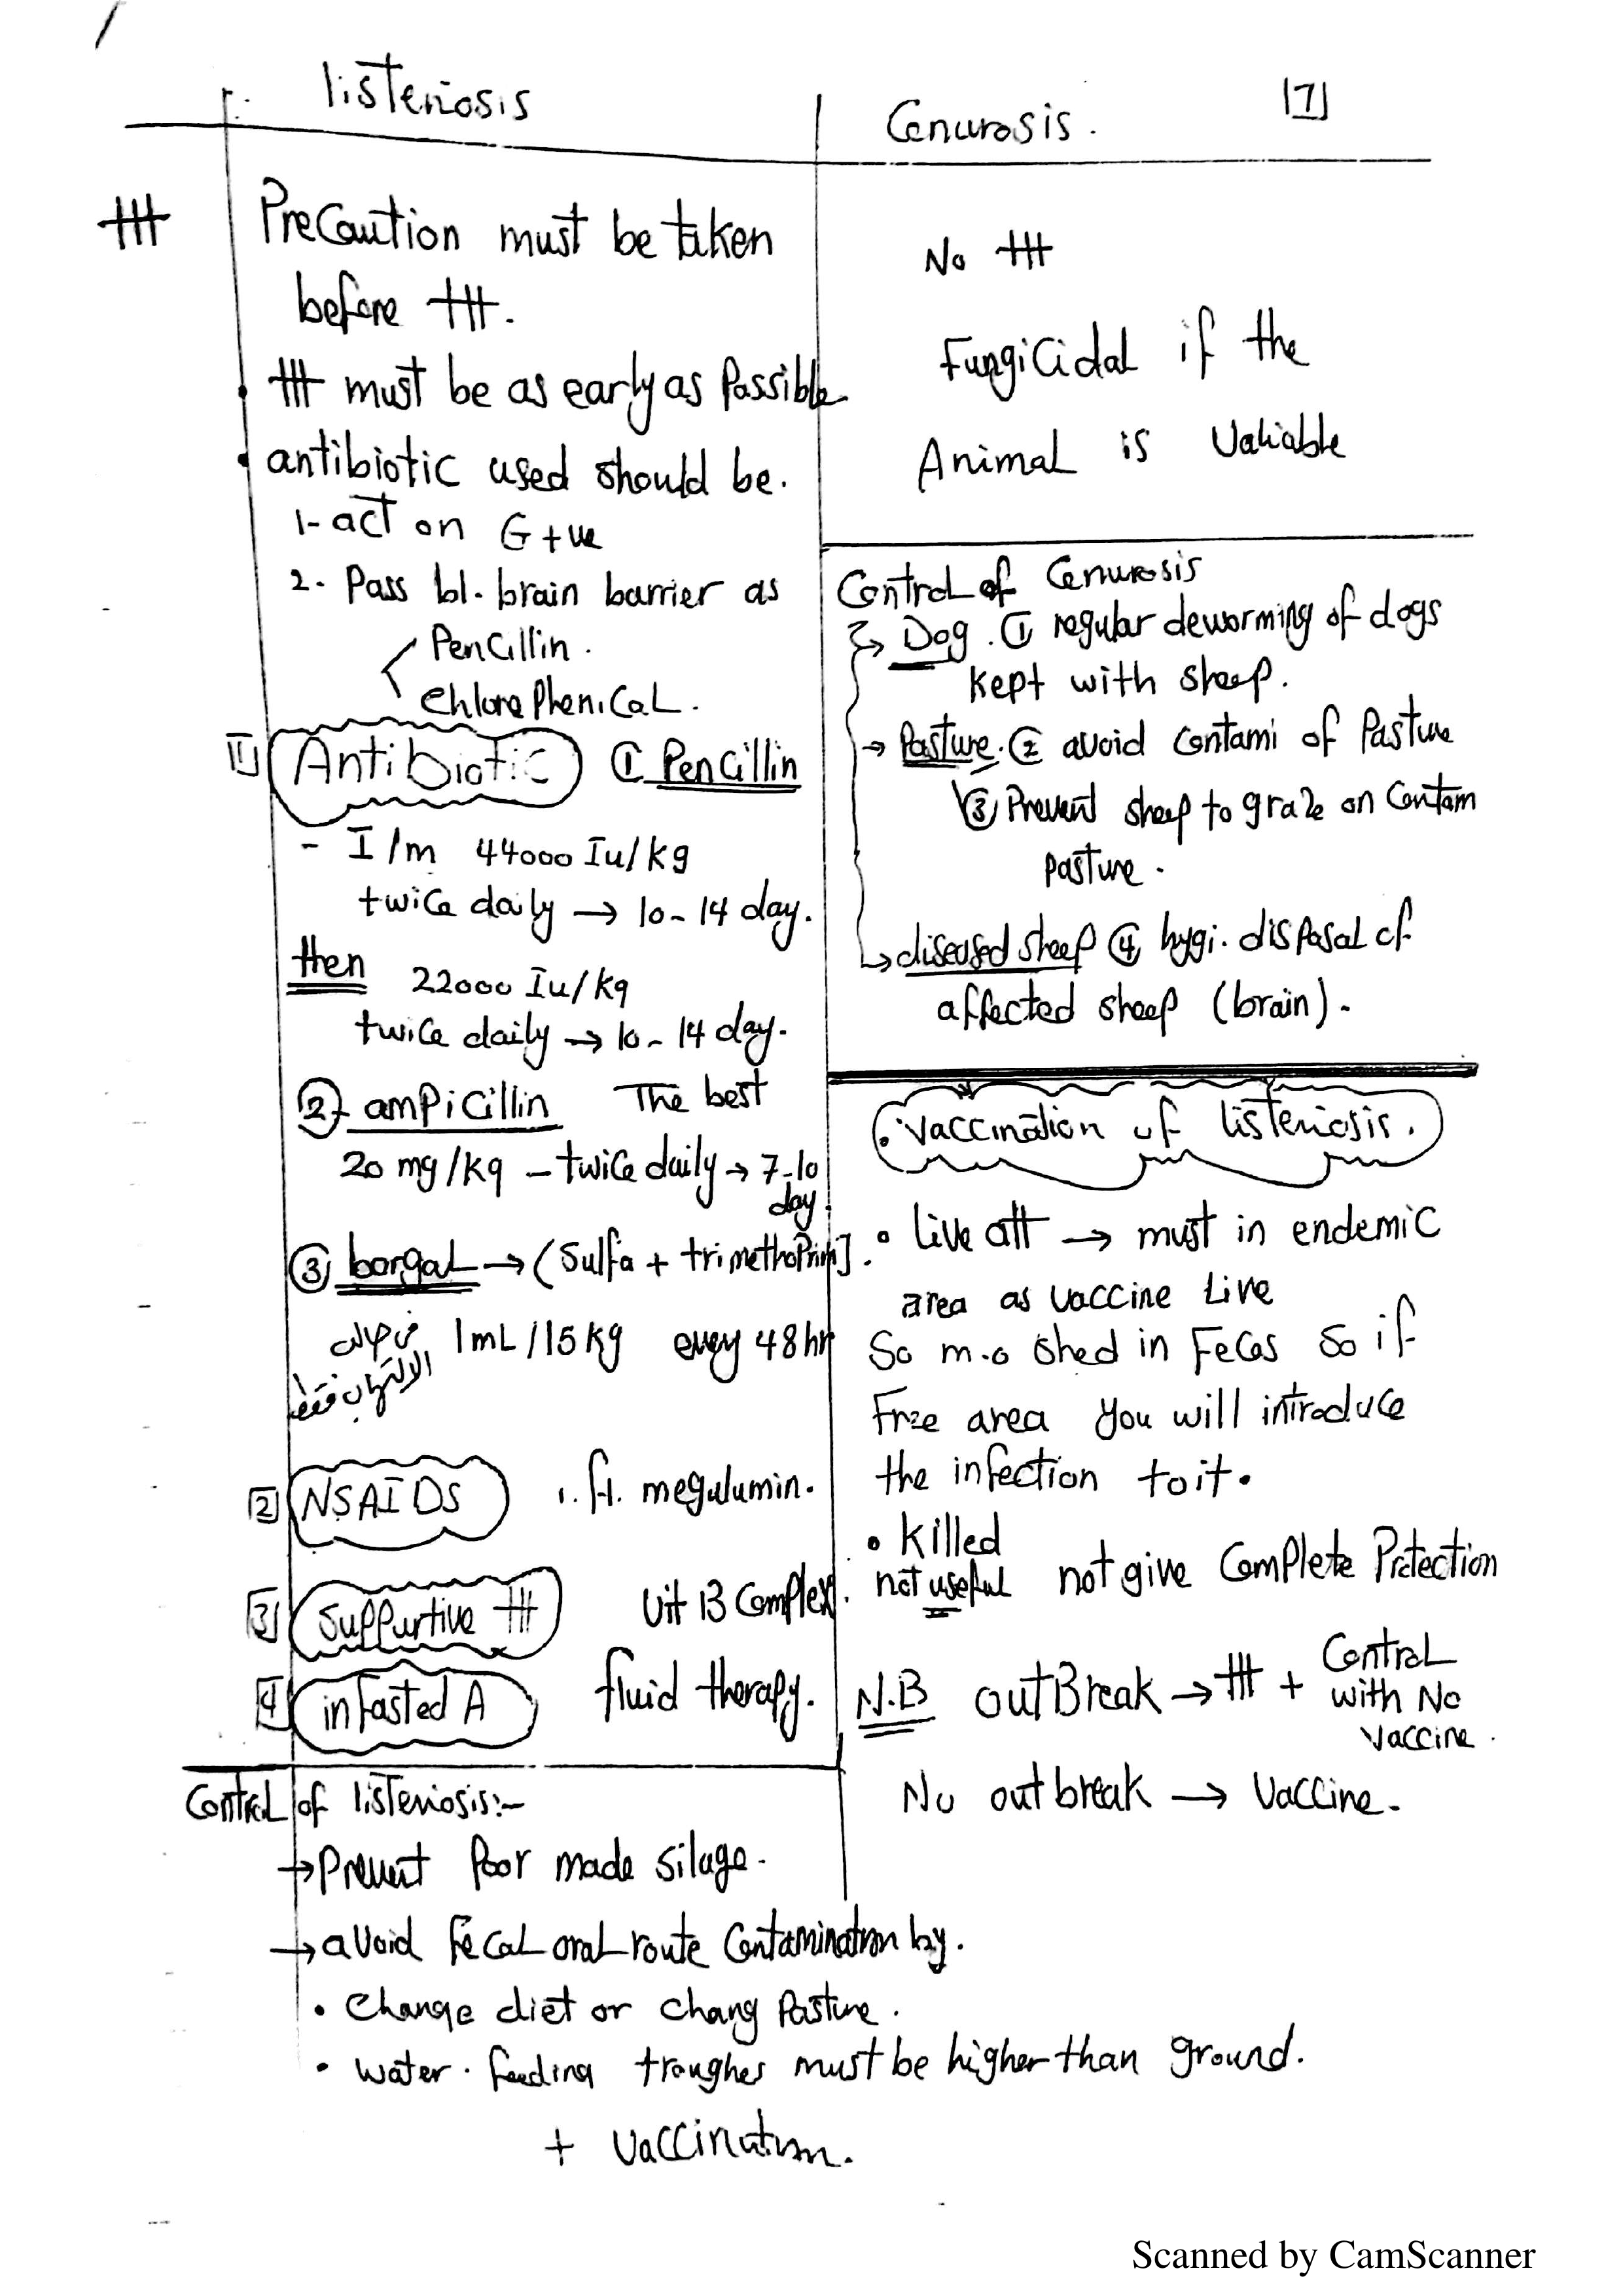 listeriosis
Cenurosis.
7
ttt
Precaution must be taken
before ttt.
• ttt must be as early as Passible
• antibiotic used should be.
1- act on G+ve
2- Pass bl. brain barrier as
Pencillin.
Chloraphenical.
1 Antibiotic ① Pencillin
- I/m 44000 Iu/kg
twice daily → 10-14 day.
then 22000 Iu/kg
twice daily → 10-14 day.
②- ampicillin The best
20 mg/kg - twice daily → 7-10
day.
③ borgal → (Sulfa + trimethoprim].
1mL/15kg every 48 hr
2 NSAIDS megulumin.
3 Suppurtive ttt Vit B Complex.
4 infasted A fluid therapy.
Control of listeriosis:-
→ Prevent Poor made silage.
→ avoid Fecal oral route Contamination by.
• Change diet or chang Pasture.
• water. feeding troughes must be higher than ground.
+ Vaccination.
No ttt
Fungicidal if the
Animal is Valiable
Control of Cenurosis
→ Dog. ① regular deworming of dogs
kept with sheep.
→ Pasture. ② avoid contami of Pasture
③ Prevent sheep to graze on Contam
pasture.
→ diseased sheep ④ hygi. disposal of
affected sheep (brain).
• Vaccination of listeriosis.
• Live att → must in endemic
area as vaccine Live
So m.o shed in Feces So if
Free area you will introduce
the infection to it.
• Killed
not useful not give Complete Protection
N.B outBreak → ttt + Control
with No
Vaccine.
No outbreak → Vaccine.
Scanned by CamScanner